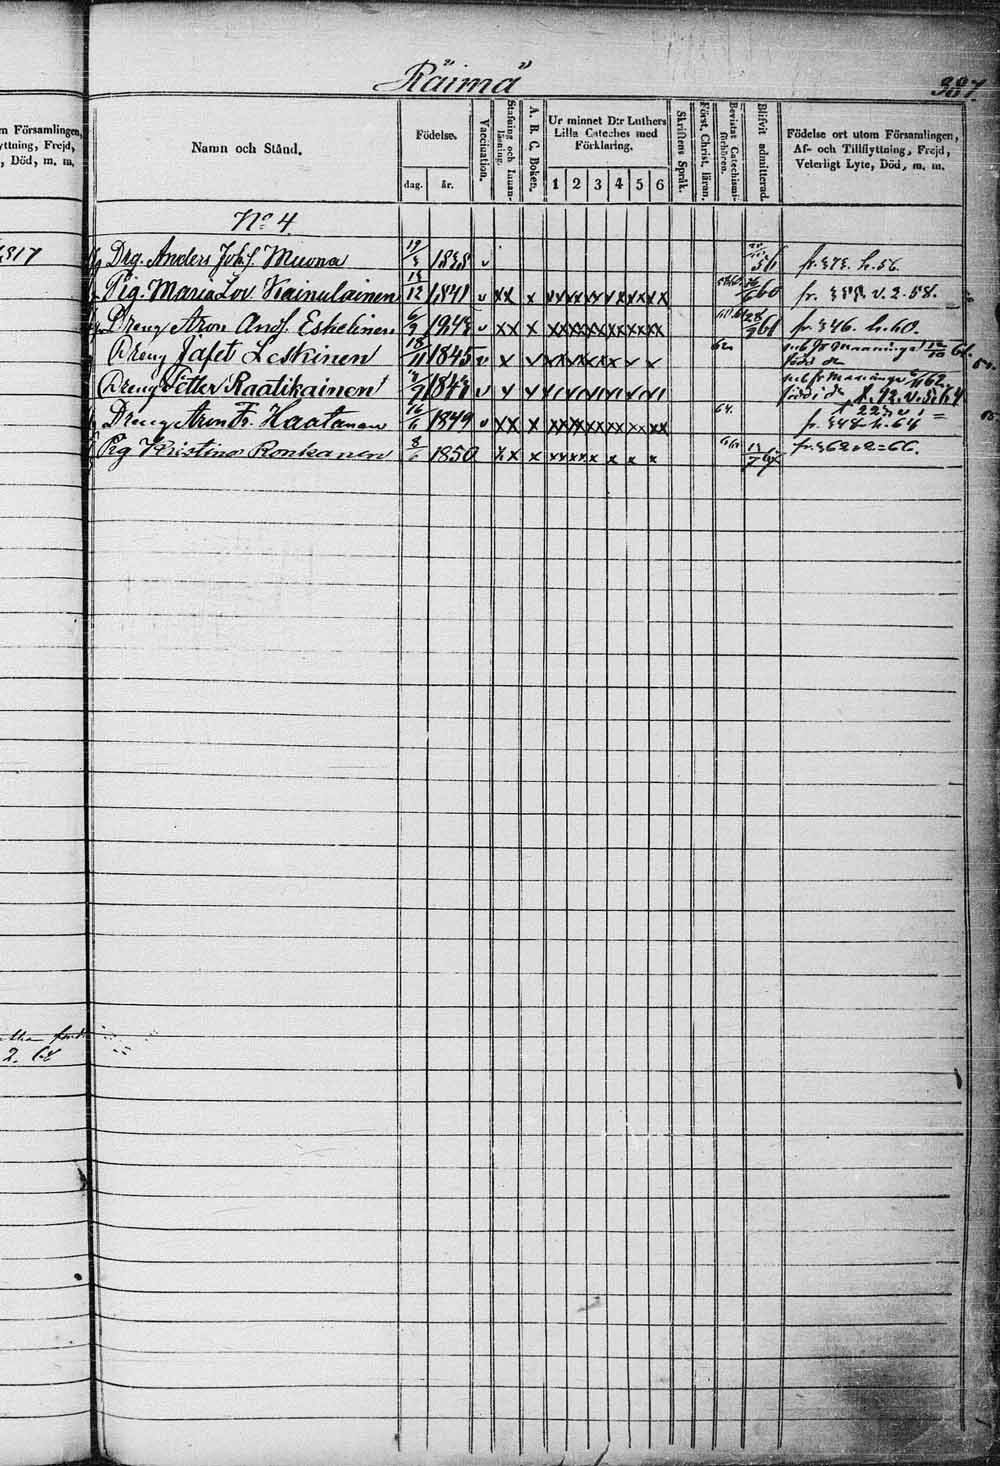 Räimä
387.
m Församlingen,
yttning, Frejd,
, Död, m. m.
Namn och Stånd.
Födelse.
dag. år.
Vaccination.
Stafning och Innan-läsning.
A. B. C. Boken.
Ur minnet D:r Luthers
Lilla Cateches med
Förklaring.
1 2 3 4 5 6
Skriftens Språk.
Först. Christ. läran.
Bevistat Catechismi-förhören.
Blifvit admitterad.
Födelse ort utom Församlingen,
Af- och Tillflyttning, Frejd,
Veterligt Lyte, Död, m. m.
No 4
1817
Drg. Anders Joh.s. Muona 19/3 1838 v 56 fr. 373. h. 56.
Pig. Maria Lov. Kainulainen 13/12 1841 v xx x xxxxxx 60 fr. v. 2. 58.
Dreng Aron And.s. Eskelinen 6/2 1843 v xx x xxxxxx 28/9 61 fr. 346. h. 60.
Dreng Jafet Leskinen 18/11 1845 v x x xxxxxx 62 fr Maaninga 12/10 61.
Dreng Petter Raatikainen 1843 v x x xxxxxx fr Maaninga 62
född i de f. 92. v. 2. 64
Dreng Aron Fr. Haatanen 16/6 1849 v xx x xxxxxx 64. fr. 348 h. 64
Pig Kristina Ronkanen 8/6 1850 xx x xxxxxx 12/7 67 fr. 362 v 2 = 66.
2. 64